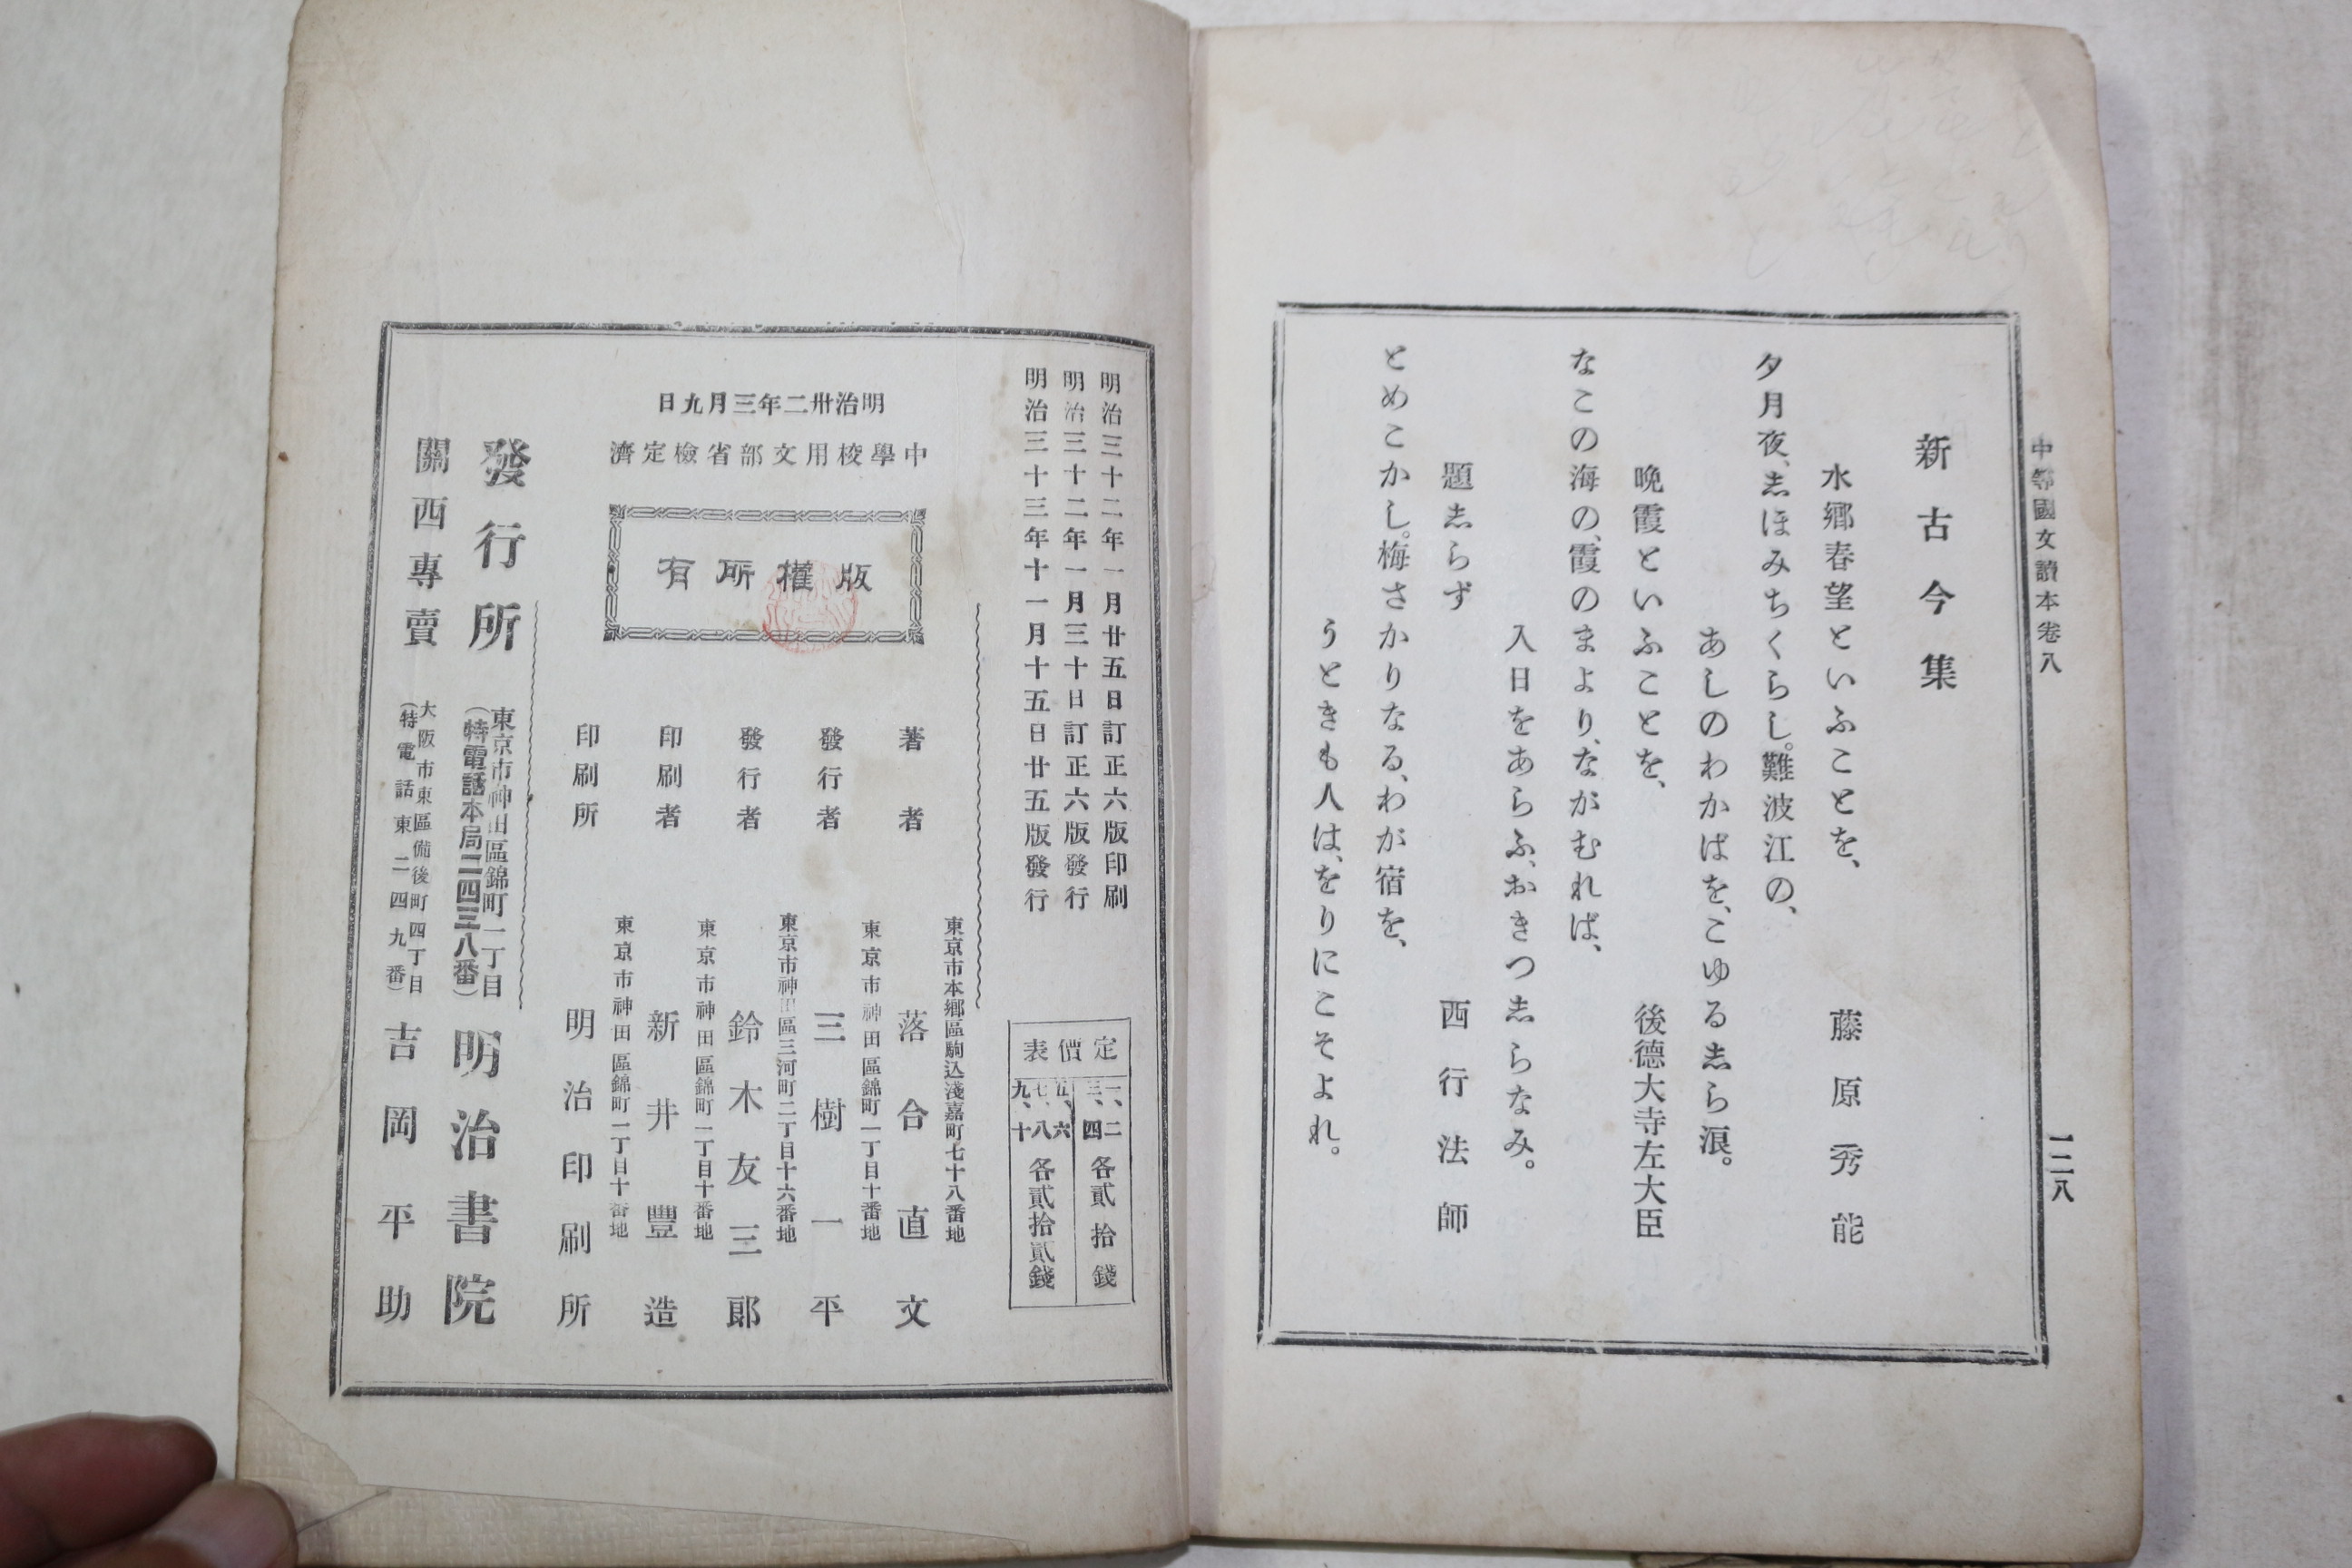 中等國文讀本卷八
一二八
新古今集
水鄕春望といふことを、
藤原秀能
夕月夜、志ほみちくらし。難波江の、
あしのわかばを、こゆる志ら浪。
晩霞といふことを、
後德大寺左大臣
なこの海の、霞のまより、ながむれば、
入日をあらふ、おきつ志らなみ。
題志らず
西行法師
とめこかし。梅さかりなる、わが宿を、
うときも人は、をりにこそよれ。
明治三十二年一月廿五日訂正六版印刷
明治三十二年一月三十日訂正六版發行
明治三十三年十一月十五日廿五版發行
定價表
一、二
三、四
各貳拾錢
五、六
七、八
九、十
各貳拾貳錢
明治卅二年三月九日
中學校用文部省檢定濟
版權所有
著者
東京市本鄕區駒込淺嘉町七十八番地
落合直文
發行者
東京市神田區錦町一丁目十番地
三樹一平
發行者
東京市神田區三河町二丁目十六番地
鈴木友三郎
印刷者
東京市神田區錦町一丁目十番地
新井豐造
印刷所
東京市神田區錦町一丁目十番地
明治印刷所
發行所
東京市神田區錦町一丁目
（特電話本局二四三八番）
明治書院
關西專賣
大阪市東區備後町四丁目
（特電話東二四九番）
吉岡平助